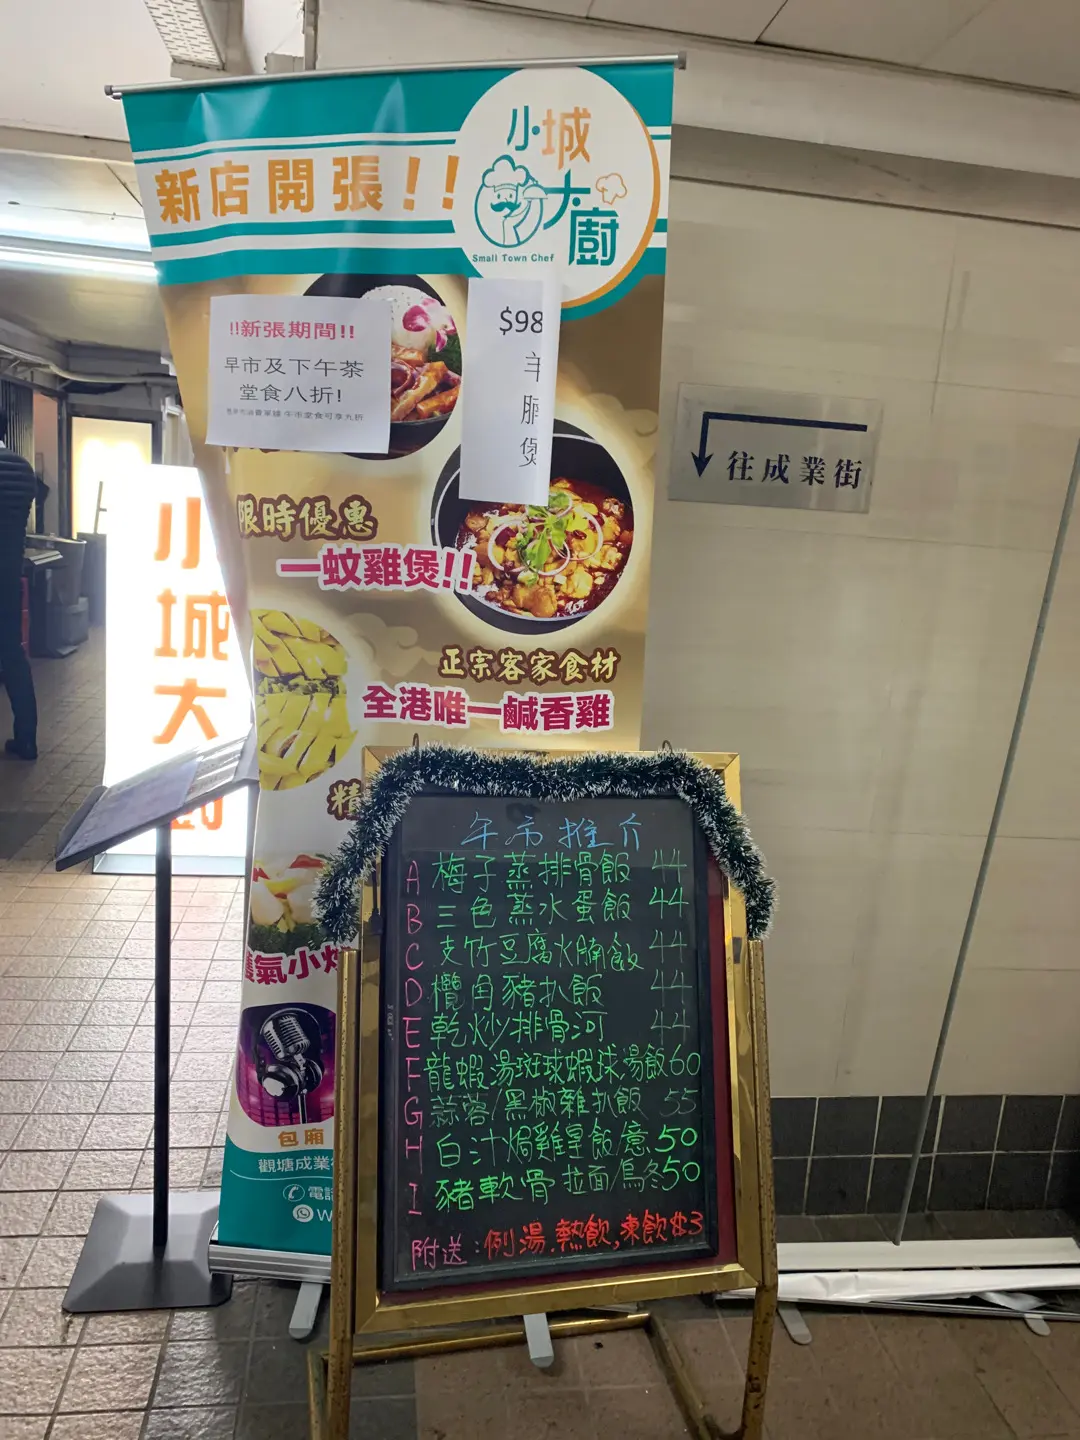 新店開張!!
小城大廚
Small Town Chef
!!新張期間!!
早市及下午茶
堂食八折!
$98
羊
腩
煲
往成業街
限時優惠
一蚊雞煲!!
正宗客家食材
全港唯一鹹香雞
小城大
精
鑊氣小炒
包廂
觀塘成業
電話
午市推介
A 梅子蒸排骨飯 44
B 三色蒸水蛋飯 44
C 支竹豆腐火腩飯 44
D 欖角豬扒飯 44
E 乾炒排骨河 44
F 龍蝦湯斑球蝦球湯飯 60
G 蒜蓉/黑椒雞扒飯 55
H 白汁焗雞皇飯/意 50
I 豬軟骨拉面/烏冬 50
附送:例湯.熱飲,凍飲加3